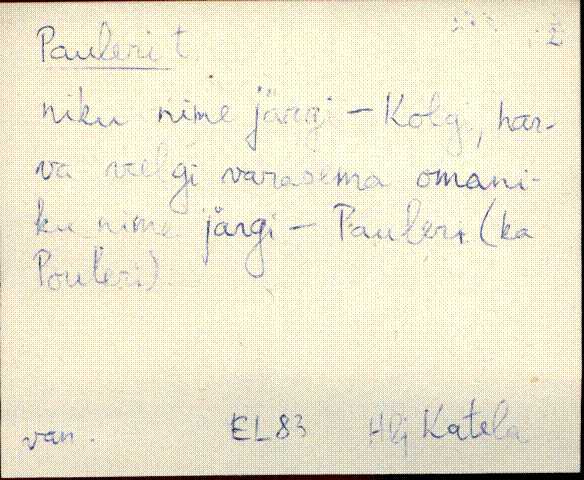 Pauleri t.
niku nime järgi – Kolgi, har-
va veelgi varasema omani-
ku nime järgi – Pauleri (ka
Pouleri)
van. EL 83 Hlj Katela